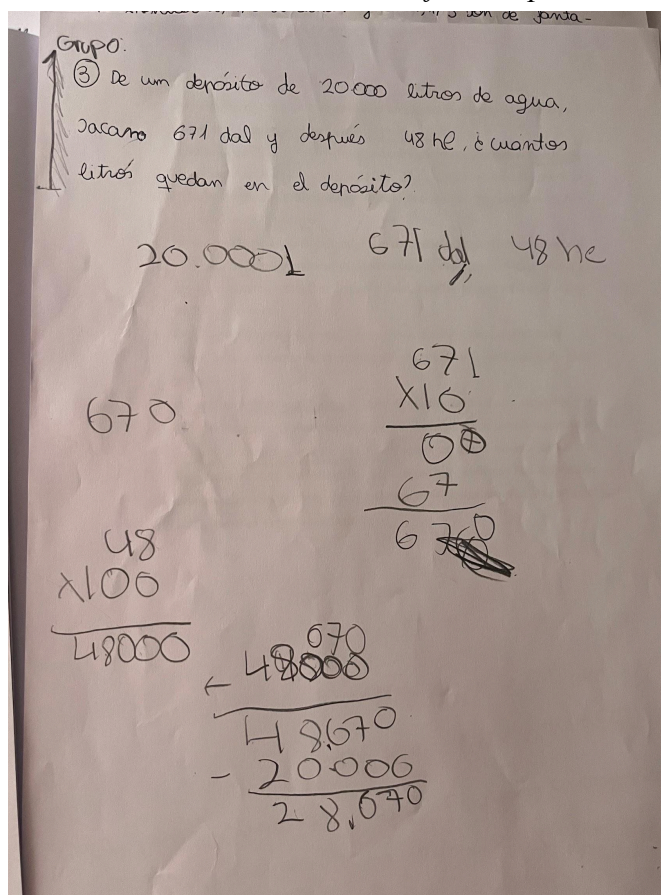 Grupo:
③ De um depósito de 20.000 litros de agua,
sacamo 671 dal y después 48 hl, ¿cuántos
litrós quedan en el depósito?
20.000L 671 dal 48 hl
671
X10
00
67
670
670
48
X100
48000
670
48000
48.670
- 20000
28.670